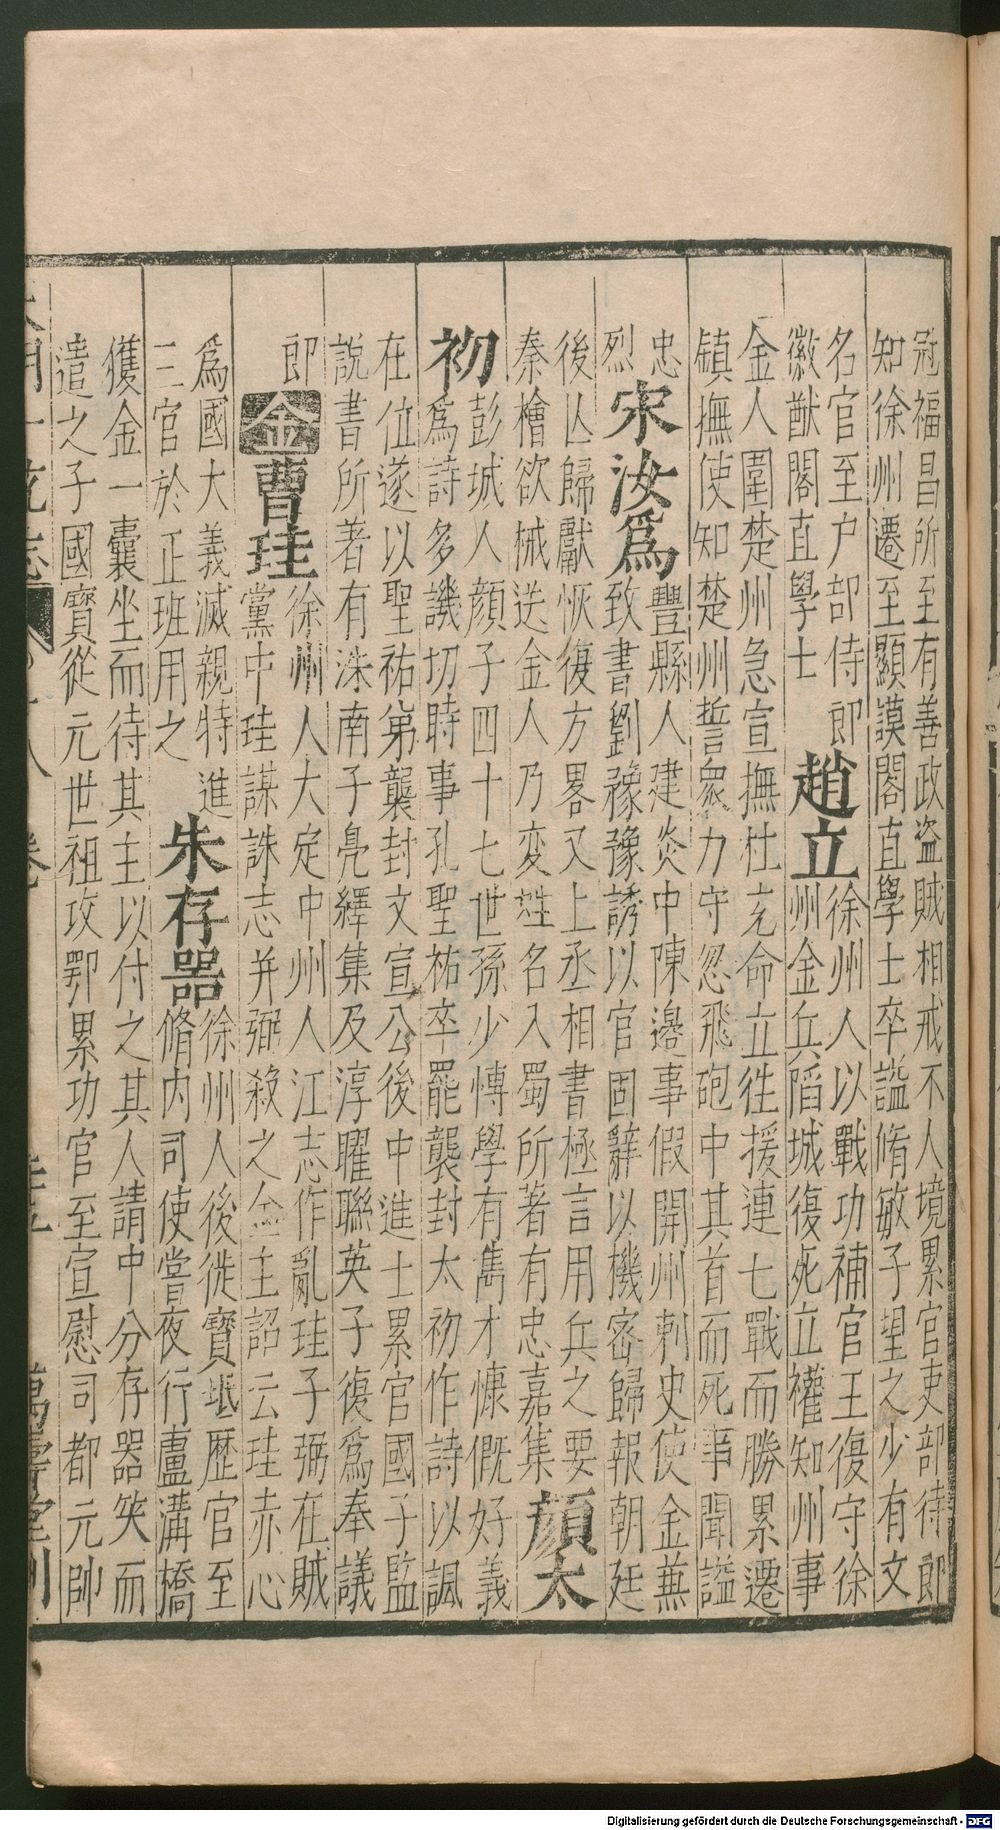 冠福昌所至有善政盜賊相戒不人境累官吏部待郎
知徐州遷至顯謨閣直學士卒謚脩敏子琞之少有文
名官至户部侍郎趙立徐州人以戰功補官王復守徐
徽猷閣直學士州金兵陷城復死立權知州事
金人圍楚州急宣撫杜充命立徃援連七戰而勝累遷
鎮撫使知楚州誓衆力守忽飛砲中其首而死事聞謚
忠
烈宋汝爲豐縣人建炎中陳邊事假開州刺史使金無
致書劉豫豫誘以官固辭以機密歸報朝廷
後亾歸獻恢復方畧又上丞相書極言用兵之要
秦檜欲械送金人乃変姓名入蜀所著有忠嘉集顔太
初彭城人顔子四十七世孫少慱學有雋才慷慨好義
爲詩多譏切時事孔聖祐卒罷襲封太初作詩以諷
在位遂以聖祐弟襲封文宣公後中進士累官國子監
說書所著有洙南子鳧繹集及淳曜聯英子復爲奉議
郎金曹珪徐州人大定中州人江志作亂珪子弼在賊
黨中珪謀誅志并弼殺之金主詔云珪赤心
爲國大義滅親特進朱存器徐州人後徙寶坻歷官至
三官於正班用之脩内司使嘗夜行盧溝橋
獲金一囊坐而待其主以付之其人請中分存器笑而
遣之子國寳從元世祖攻鄂累功官至宣慰司都元帥
Digitalisierung gefördert durch die Deutsche Forschungsgemeinschaft - DFG